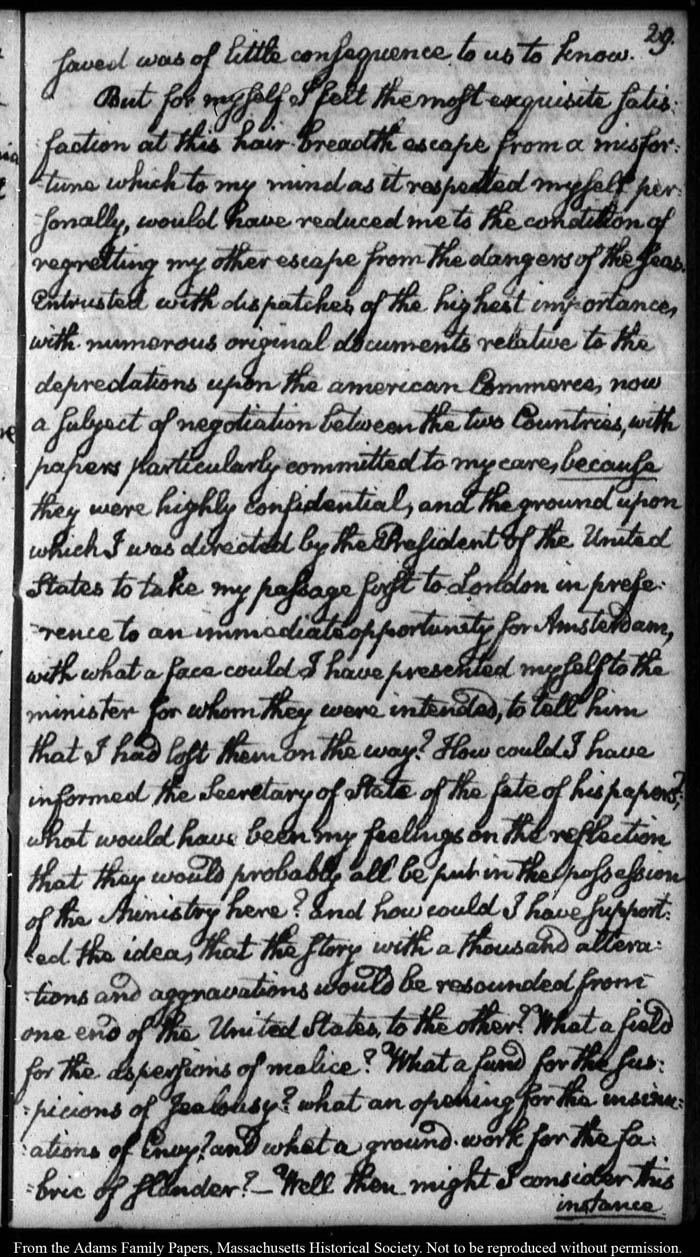 29.
saved was of little consequence to us to know.
But for myself I felt the most exquisite satis:
faction at this hair-breadth escape from a misfor:
:tune which to my mind as it respected myself per:
:sonally, would have reduced me to the condition of
regretting my other escape from the dangers of the seas.
Entrusted with dispatches of the highest importance,
with numerous original documents relative to the
depredations upon the american Commerce, now
a subject of negotiation between the two Countries, with
papers particularly committed to my care, because
they were highly confidential, and the ground upon
which I was directed by the President of the United
States to take my passage first to London in prefe:
:rence to an immediate opportunity for Amsterdam,
with what a face could I have presented myself to the
minister for whom they were intended, to tell him
that I had lost them on the way? How could I have
informed the Secretary of State of the fate of his papers?;
what would have been my feelings on the reflection
that they would probably all be put in the possession
of the Ministry here? And how could I have support:
:ed the idea, that the story with a thousand altera:
:tions and aggravations would be resounded from
one end of the United States, to the other? What a field
for the aspersions of malice? What a fund for the sus:
:picions of Jealousy? what an opening for the insinu:
:ations of Envy? and what a ground-work for the fa:
:bric of slander? — Well then might I consider this
instance
From the Adams Family Papers, Massachusetts Historical Society. Not to be reproduced without permission